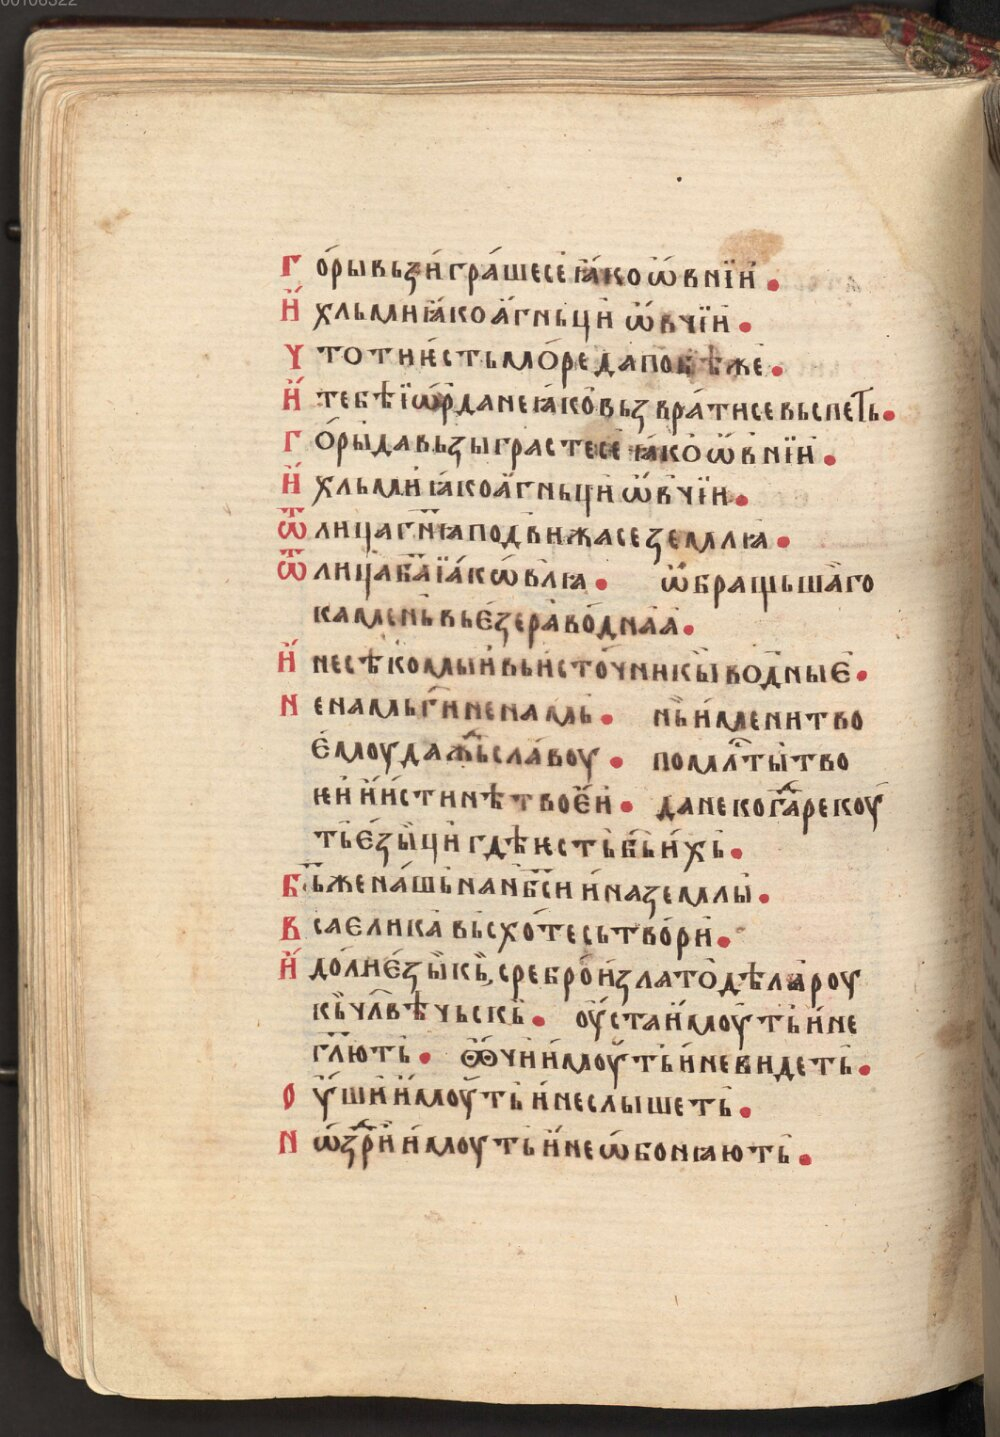 00106322
Го́рывьзи́гра́шесе ꙗ́коѡ҆́внїи҆.
И҆́ хльмиꙗ́коа҆́гньци҆ ѡ҆́вчїи҆.
Чтотиѥ́стьмо́редапобѣже.
И҆́ тебѣїѡ҆рⷣданеꙗ́ко́вьꙁвра́тисевьспеть.
Го́рыдавьꙁыграстесе ꙗ́коѡ҆́внїи҆.
И҆́ хльми҆ꙗ́коа҆́гньци҆ѡ҆́вчїи҆.
Ѿлицаг҃нꙗподви́жасеꙁемлꙗ.
Ѿлица́б҃аїа́кѡ҆влꙗ. ѡ҆́бращьша́го
каменьвье҆́ꙁераво́днаа́.
И҆́ несѣкомыи҆вьи҆сто́чникы̀водныѥ.
Ненамьг҃иненамь. нь̀и҆менитво
е҆моуда́жⷣьсла́воу. помл҃ты҆тво
ѥи҆ и҆́истинѣтвое҆́и. данекогⷣа́рекоу́
тье҆́ꙁы̀ци҆гдѣѥстьб҃ьи҆́хь.
Б҃ьжена́шьнанб҃си и҆́наꙁемлы.
Всаелика̀вьсхо́тесьтво́ри.
И҆́ до́лие҆́ꙁы̀кь,сребро́и҆́ꙁлато̀,дѣлꙗроу
кь̀чл҃вѣчьскь. оу҆́стаи҆́моу́ть и҆́не
гл҃ють. ѻ҆́чии҆́моу́ть и҆́невидеть.
Оу҆́шии҆́моу́ть и҆́неслышеть.
Нѡ҆ꙁдⷣри҆ и҆́моуть и҆́неѡ҆бонꙗють.